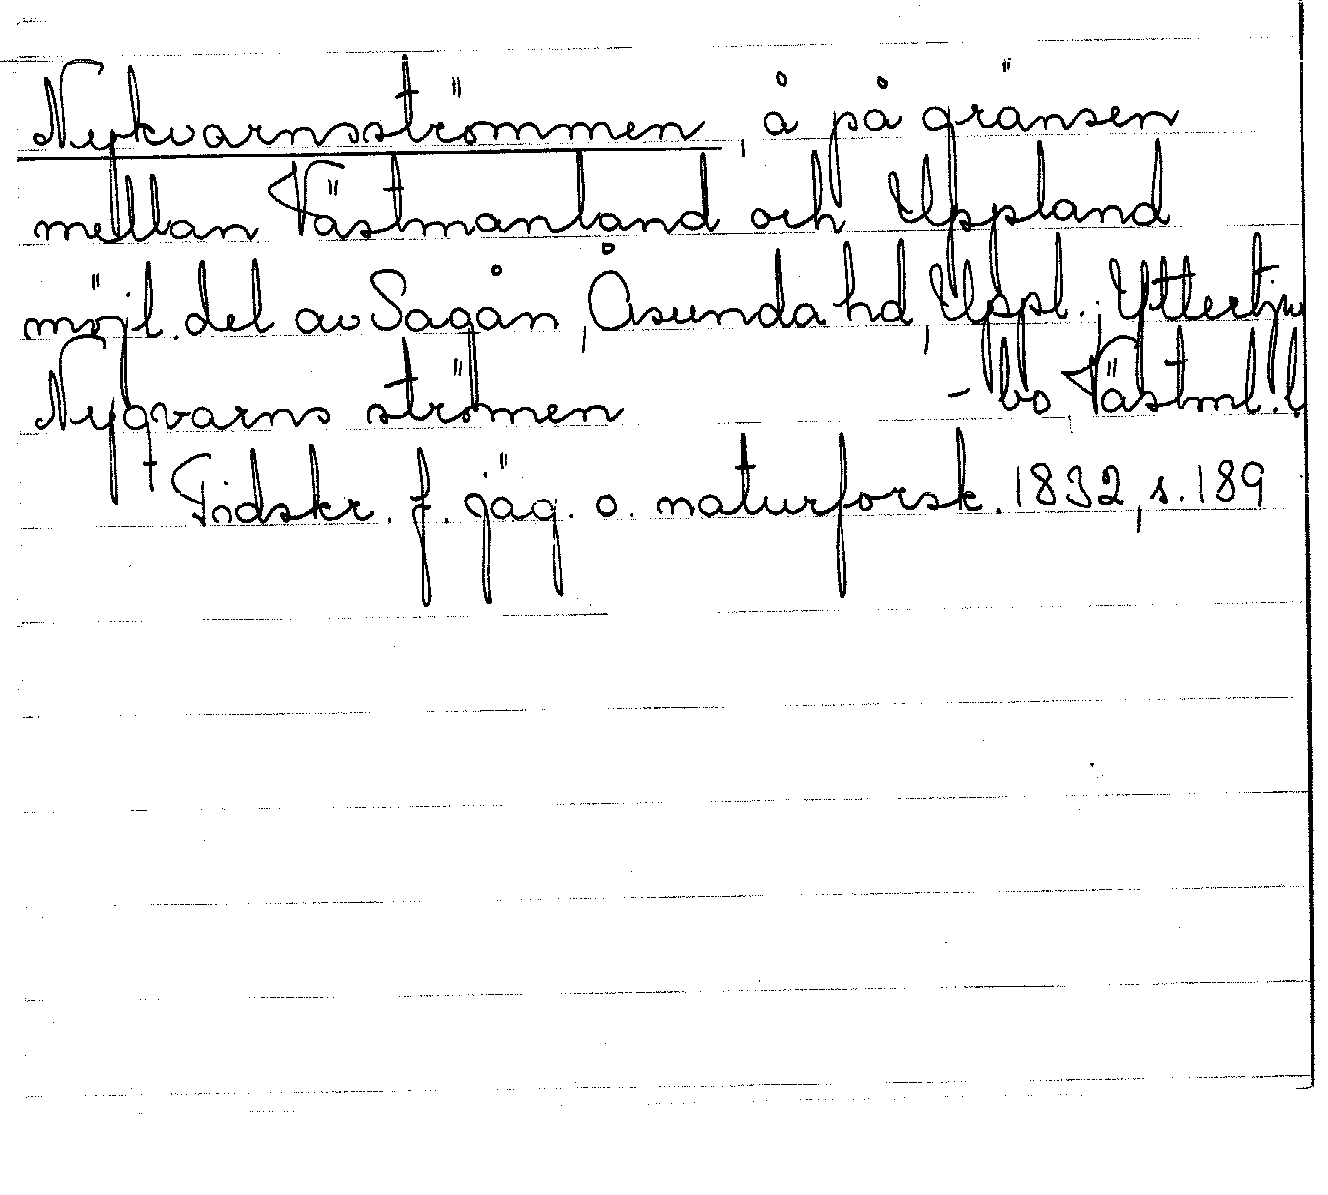 Nykvarnsströmmen, å på gränsen
mellan Västmanland och Uppland
möjl. del av Sagån, Åsunda hd, Uppl.; Yttertju
Nygvarns strömen - bo Västml. l
Tidskr. f. jäg. o. naturforsk. 1832, s. 189